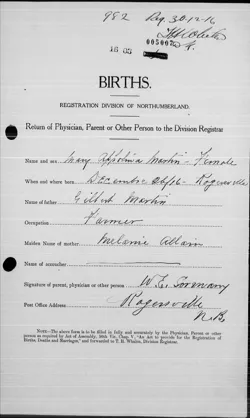 982 Reg 30-12-16
005002
BIRTHS.
REGISTRATION DIVISION OF NORTHUMBERLAND.
Return of Physician, Parent or Other Person to the Division Registrar
Name and sex Mary Martin - Female
When and where born December 26/16 - Rogersville
Name of father Gilbert Martin
Occupation Farmer
Maiden Name of mother Melanie Allain
Name of accoucheur
Signature of parent, physician or other person
Post Office Address Rogersville
N.B.
NOTE.—The above form is to be filled in fully and accurately by the Physician, Parent or other person as required by Act of Assembly, 50th Vic. Chap. V., "An Act to provide for the Registration of Births, Deaths and Marriages," and forwarded to T. H. Whalen, Division Registrar.